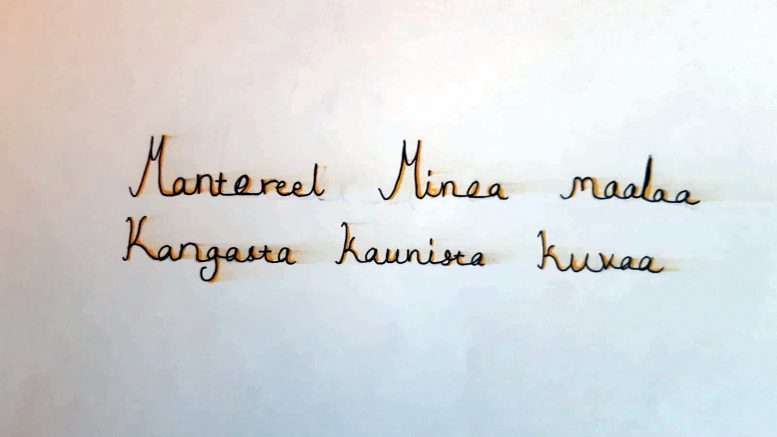 Mantereel Minea maalaa
Kangasta kaunista kuvaa